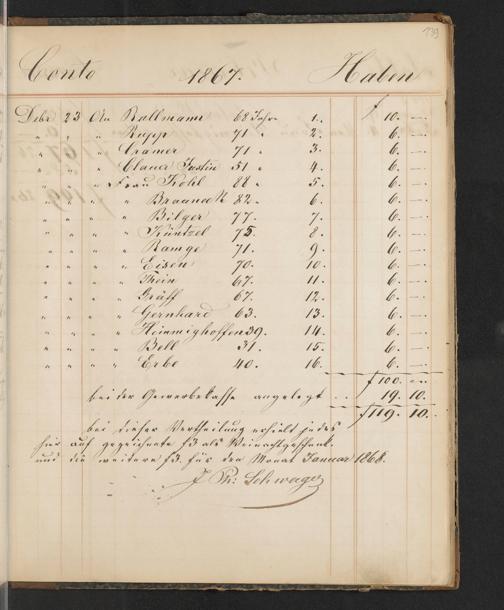 139
Conto 1867. Haben
f
Debr 23 An Rallmann 68 Jahr 1. 10. —
" " " " Rupp 71 " 2. 6. —
" " " " Cramer 71 " 3. 6. —
" " " " Clauer Justin 51 " 4. 6. —
" " " " Frau Kohl 88 " 5. 6. —
" " " " " 82. 6. 6. —
" " " " " Bilger 77. 7. 6. —
" " " " " Küntzel 75. 8. 6. —
" " " " " Ramge 71. 9. 6. —
" " " " " Eisen 70. 10. 6. —
" " " " " 67. 11. 6. —
" " " " " Gräff 67. 12. 6. —
" " " " Gernhard 63. 13. 6. —
" " " " Heimighoffen 39. 14. 6. —
" " " " Bell 31. 15. 6. —
" " " " Erbe 40. 16. 6. —
f 100. —
bei der Gewerbekasse angelegt . . 19. 10.
f 119. 10.
bei dieser Vertheilung erhielt jedes
hier auf gezeichnete f 3 als Weinachtgeschenk
und die weitere f 3. für den Monat Januar 1868.
J Ph: Schwager